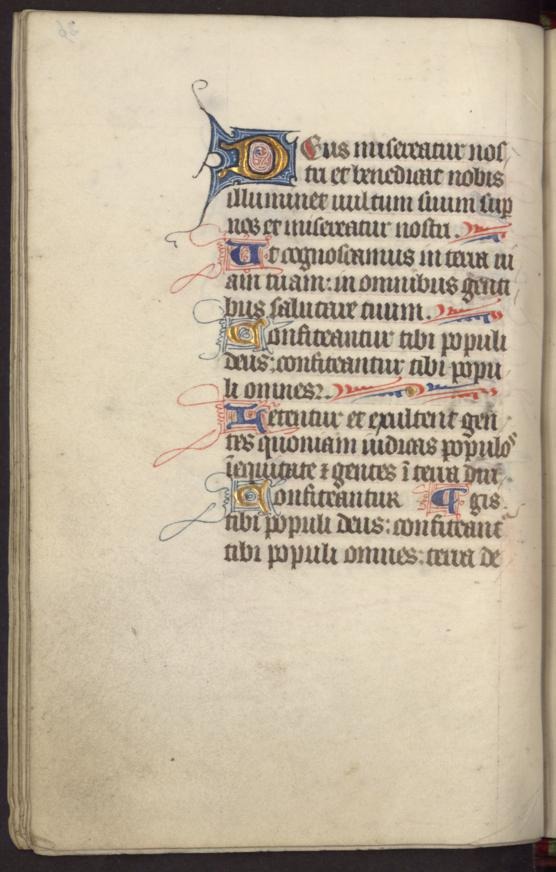 Deus misereatur nos
tri et benedicat nobis
illuminet uultum suum sup
nos et misereatur nostri.
Ut cognoscamus in terra ui
am tuam: in omnibus genti
bus salutare tuum.
Confiteantur tibi populi
deus: confiteantur tibi popu
li omnes.
Letentur et exultent gen
tes quoniam iudicas populos
ī equitate et gentes ī terra diri
Confiteantur gis
tibi populi deus: confiteant
tibi populi omnes: terra de